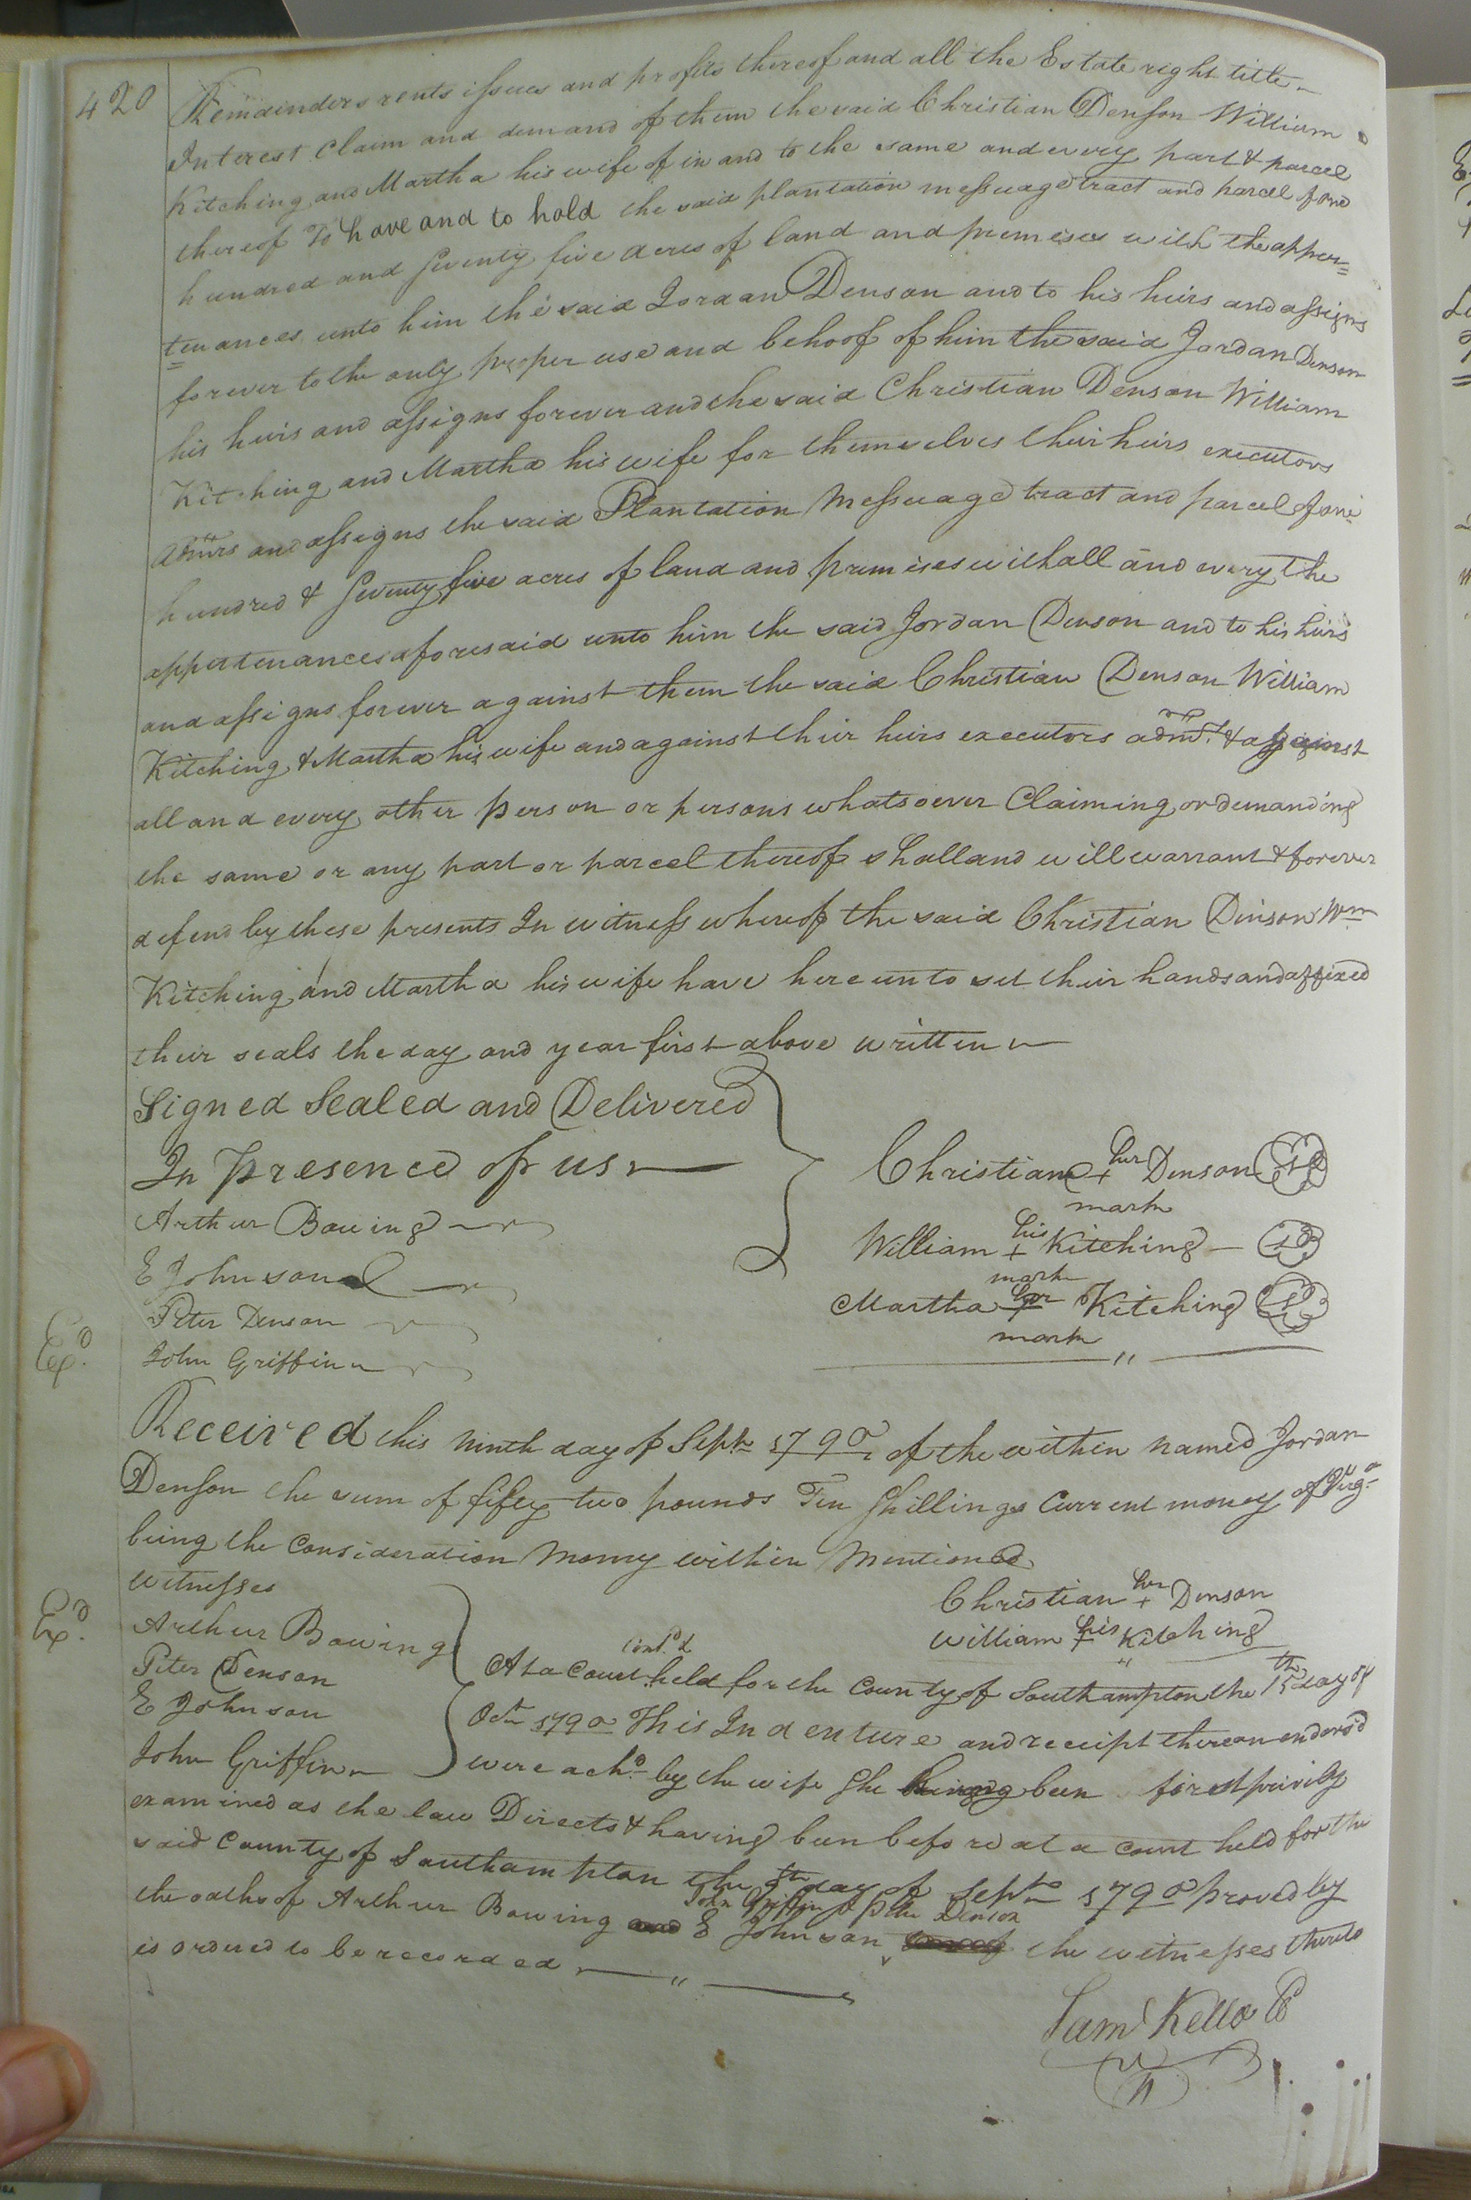 420
Remainders rents issues and profits thereof and all the Estate right title
Interest Claim and demand of them the said Christian Denson William
Kitching and Martha his wife of in and to the same and every part & parcel
thereof To have and to hold the said plantation messuage tract and parcel of one
hundred and Seventy five acres of land and premises with the appur=
=tenances unto him the said Jordan Denson and to his heirs and assigns
forever to the only proper use and behoof of him the said Jordan Denson
his heirs and assigns forever and the said Christian Denson William
Kitching and Martha his wife for themselves their heirs executors
admrs and assigns the said Plantation Messuage tract and parcel of one
hundred & Seventy five acres of land and premises with all and every the
appurtenances aforesaid unto him the said Jordan Denson and to his heirs
and assigns forever against them the said Christian Denson William
Kitching & Martha his wife and against their heirs executors admrs & against
all and every other person or persons whatsoever Claiming or demanding
the same or any part or parcel thereof shall and will warrant & forever
defend by these presents In witness whereof the said Christian Dinson Wm
Kitching and Martha his wife have hereunto set their hands and affixed
their seals the day and year first above written
Signed Sealed and Delivered
In presence of us
Christian her + mark Denson LS
Arthur Bowing
William his + mark Kitching LS
E Johnson
Martha her + mark Kitching LS
Peter Denson
Exd.
John Griffin
Received this ninth day of Septr 1790 of the within named Jordan
Denson the sum of fifty two pounds Ten Shillings Current money of Virga
being the Consideration Money within Mentioned
Witnesses
Christian her + Denson
Exd.
Arthur Bowing
William his + Kitching
Peter Denson
At a Court Contd held for the County of Southampton the 15th day of
E Johnson
Octr 1790 This Indenture and receipt thereon endorsd
John Griffin
were ackd by the wife She being been first privily
examined as the law Directs & having been before at a court held for the
said County of Southampton the 9th day of Septr 1790 proved by
the oaths of Arthur Bowing and E Johnson John Griffin & Peter Denson the witnesses thereto
is ordered to be recorded
Saml Kello CC